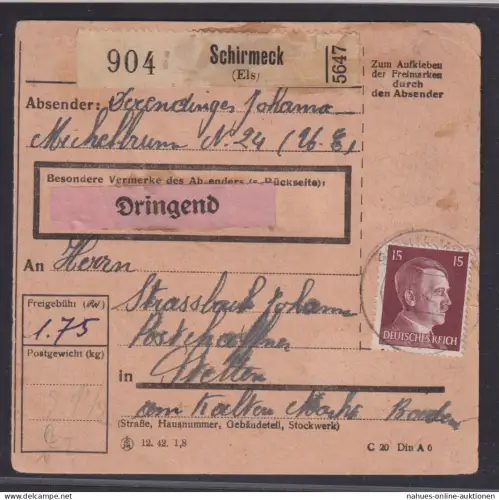 904
Schirmeck
(Els)
5647
Zum Aufkleben
der Freimarken
durch
den Absender
Absender: Johanna
N. 24 (U. E.)
Besondere Vermerke des Absenders (s. Rückseite):
Dringend
An Herrn
Johann
in Stetten
am kalten Markt Baden
Freigebühr (RM)
1.75
Postgewicht (kg)
15 15
DEUTSCHES REICH
(Straße, Hausnummer, Gebäudeteil, Stockwerk)
12. 42. 1,8
C 20 Din A 6
www.nummus-online-auktionen